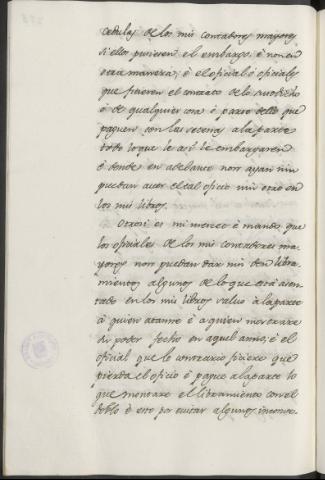 cedulas de los mis contadores mayores
si ellos pusieren el embargo, é non en
otra manera; é el oficial ó oficiales
que ficieren el contrario de lo susodicho
ó de qualquier cosa é parte dello que
paguen con las setenas á la parte
todo lo que le asi le embargaren
é donde en adelante non ayan nin
puedan aver el tal oficio nin otro en
los mis libros.
Otrosi es mi merced é mando que
los oficiales de los mis contadores ma-
yores non puedan dar nin den libra-
mientos algunos de lo que está asen-
tado en los mis libros salvo á la parte
á quien atanne é a quien mostrare
su poder fecho en aquel anno; é el
oficial que lo contrario ficiere que
pierda el oficio é pague á la parte lo
que montare el libramiento con el
doblo é esto por evitar algunos inconve-